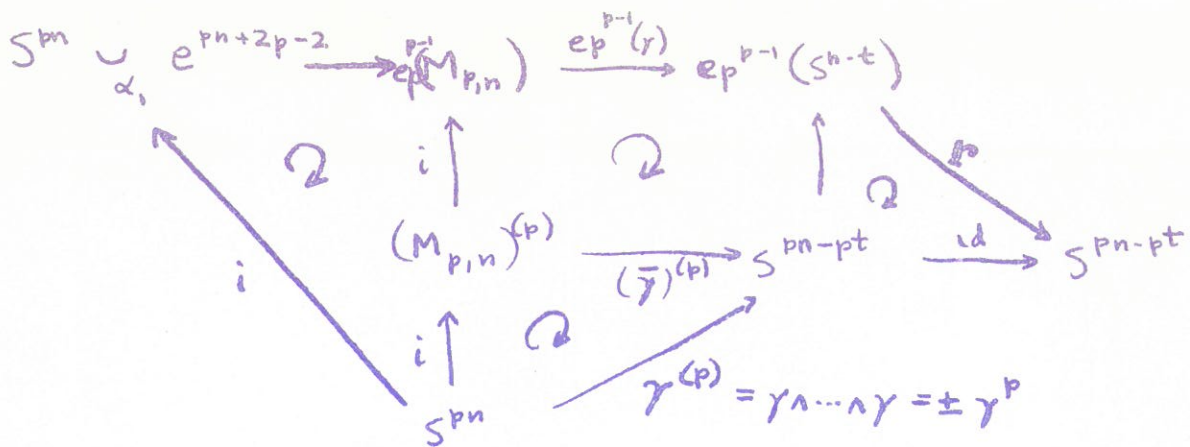 S^{pn} ∪_{α_1} e^{pn+2p-2} → ep^{p-1}(M_{p,n}) ep^{p-1}(γ) → ep^{p-1}(S^{n-t})
i i r
(M_{p,n})^{(p)} (γ̄)^{(p)} S^{pn-pt} id S^{pn-pt}
i
S^{pn} γ^{(p)} = γ∧···∧γ = ± γ^p